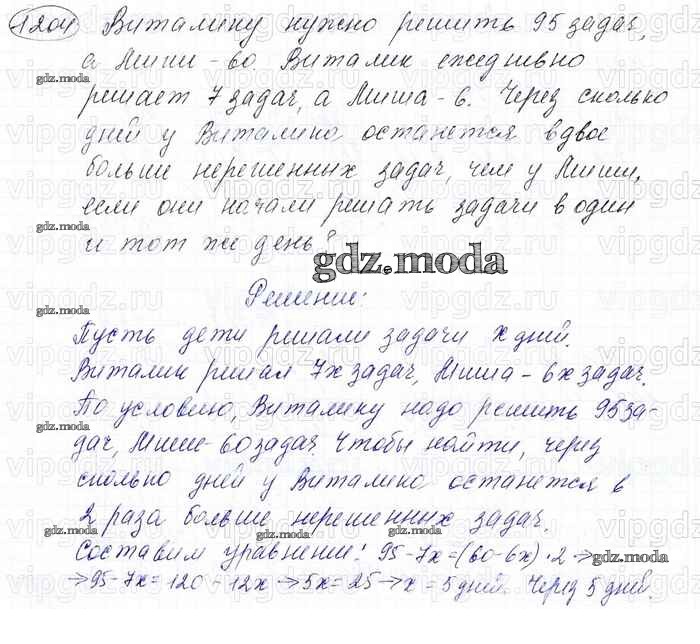 1204 Виталику нужно решить 95 задач,
а Миши - 60 Виталик ежедневно
решает 7 задач, а Миша - 6. Через сколько
дней у Виталика останется вдвое
больше нерешенных задач, чем у Миши,
если они начали решать задачи в один
и тот же день?
gdz.moda
Решение:
Пусть дети решали задачи x дней.
Виталик решал 7x задач, Миша - 6x задач.
По условию, Виталику надо решить 95 за-
дач, Миши - 60 задач. Чтобы найти, через
сколько дней у Виталика останется в
2 раза больше нерешенных задач.
Составим уравнение: 95-7x=(60-6x)·2→
→95-7x=120-12x→5x=25→x=5дней. Через 5 дней.